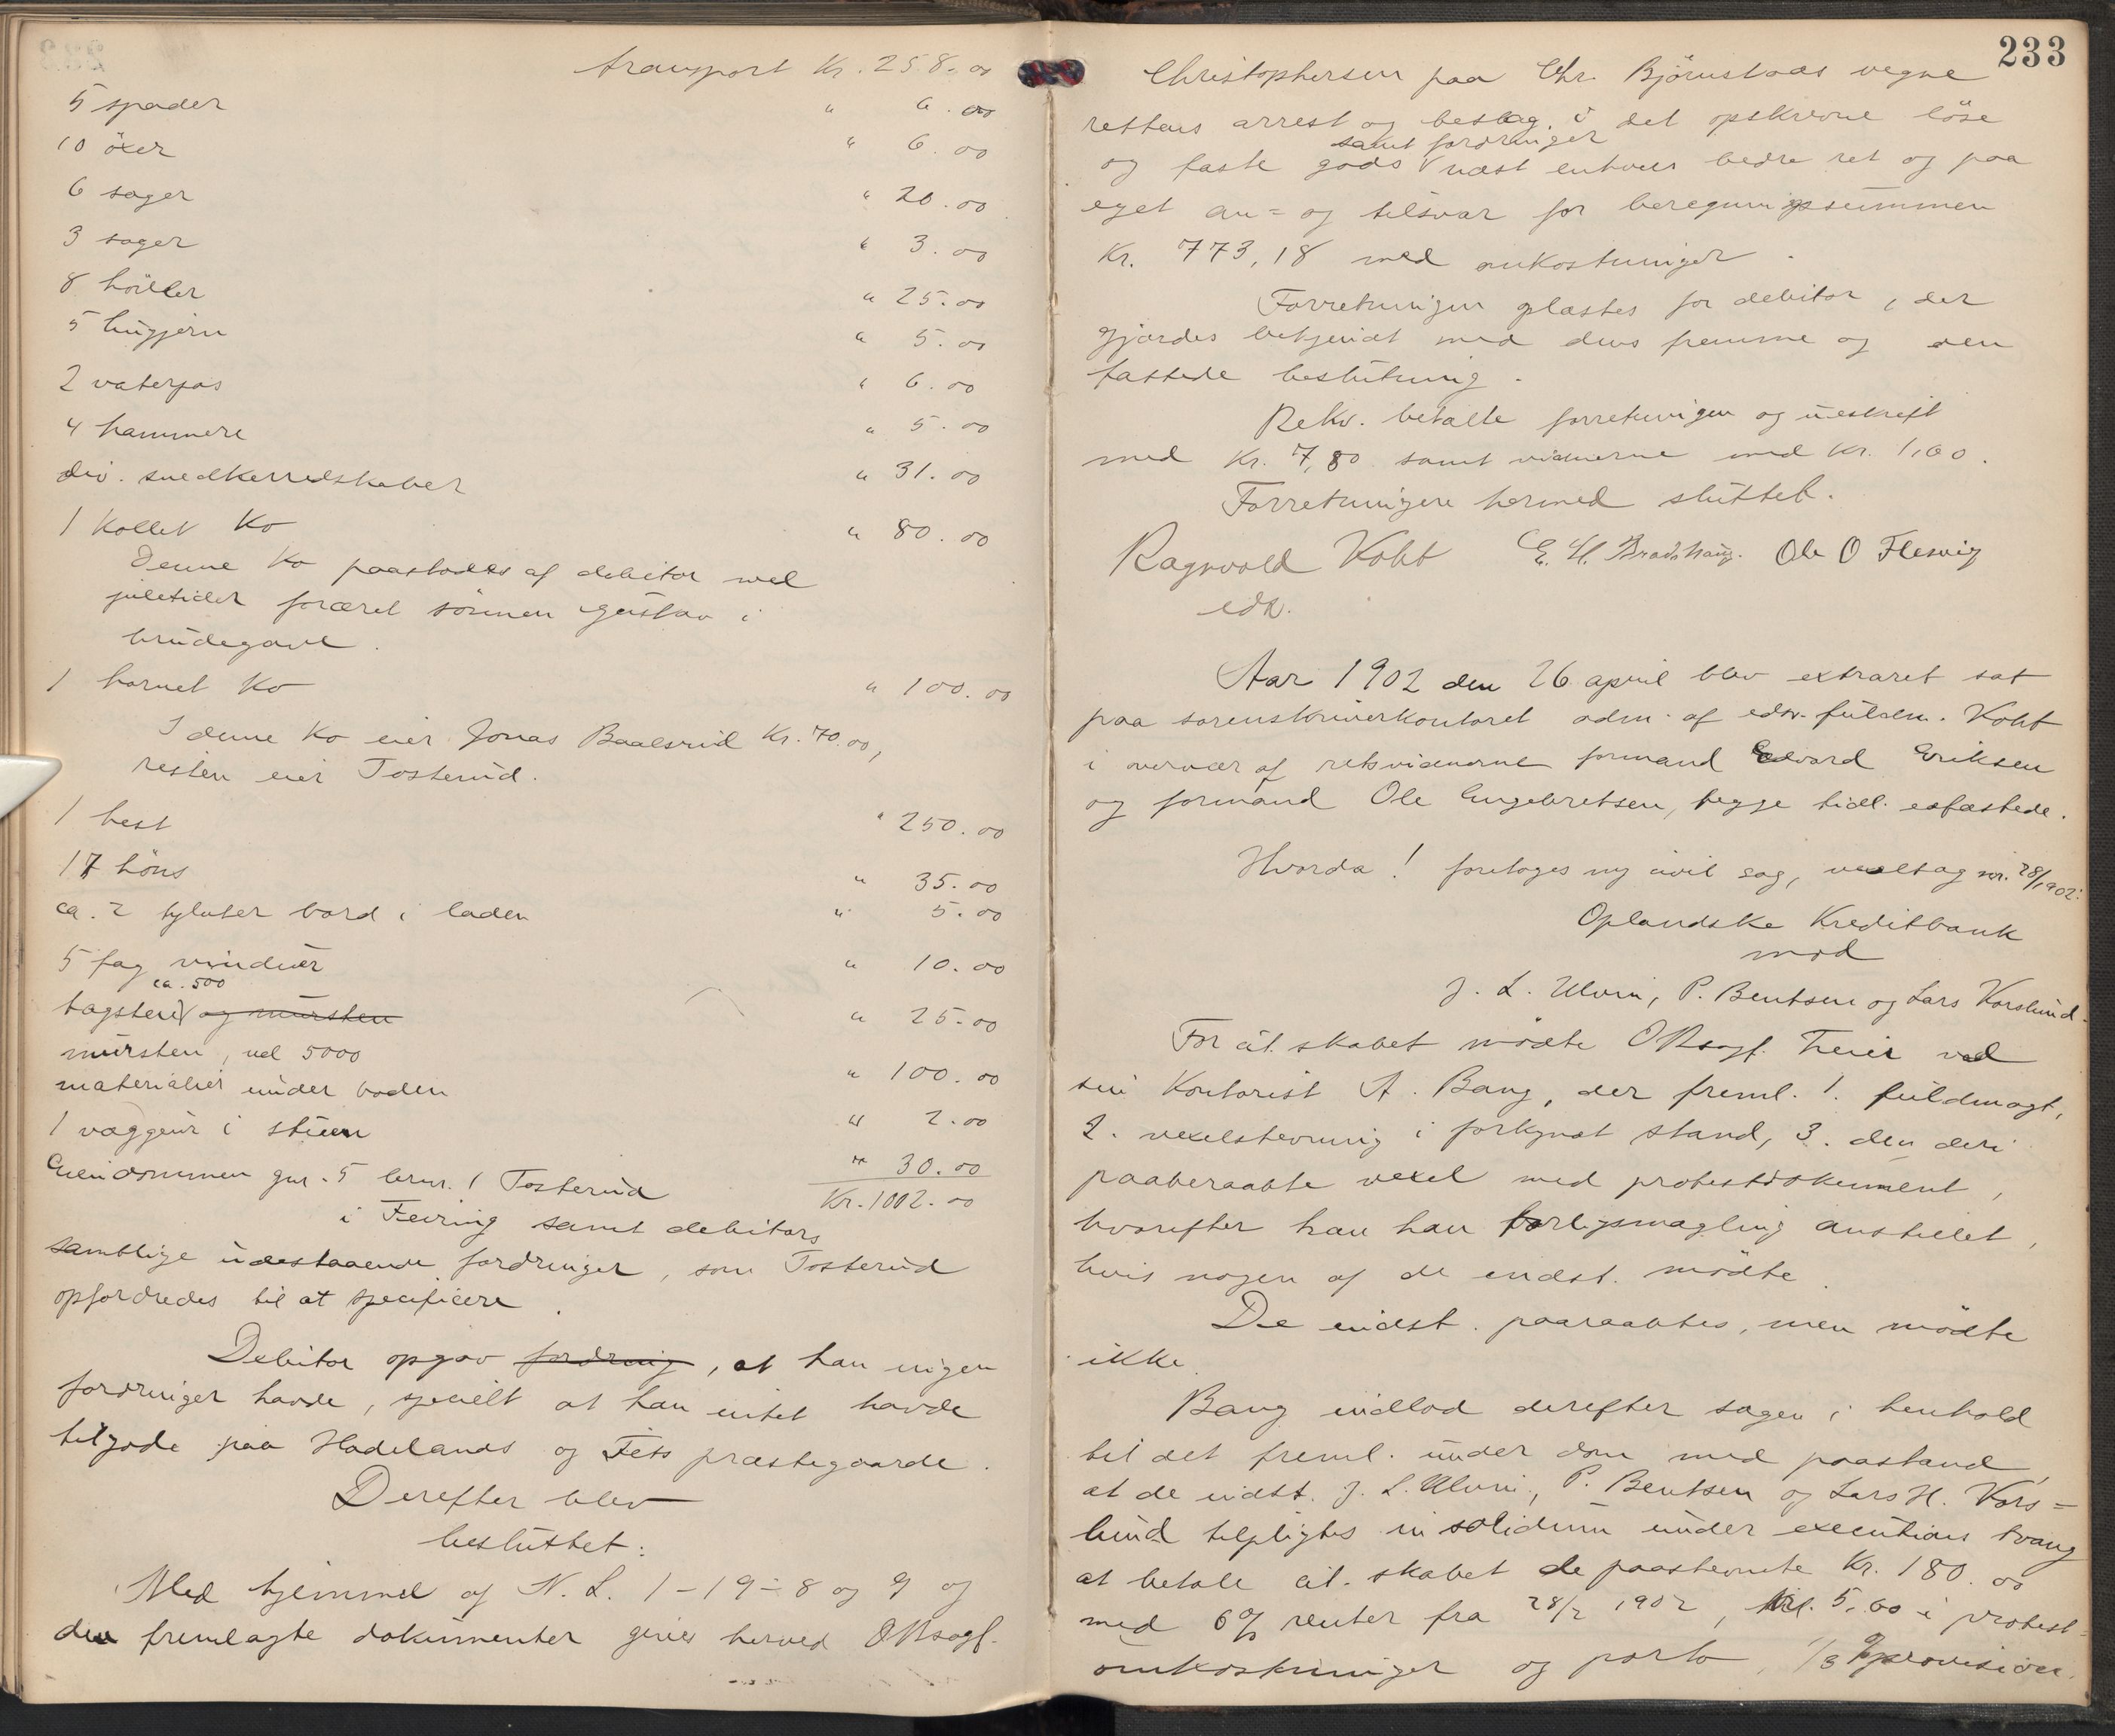 transport Kr. 258.00
5 spader " 6.00
10 öxer " 6.00
6 sager " 20.00
3 sager " 3.00
8 höitler " 25.00
5 hugjern " 5.00
2 vaterpas " 6.00
4 hammere " 5.00
div. snedkerredskaber " 31.00
1 kollet ko " 80.00
Denne ko paastodes af debitor ved
juletider foræret sönnen Gustav i
brudegave.
1 hornet ko " 100.00
I denne ko eier Jonas Baalsrud Kr. 70.00,
resten eier Tosterud.
1 hest " 250.00
17 höns " 35.00
ca. 2 tylvter bord i laden " 5.00
5 fag vinduer " 10.00
ca. 500
tagsten og mursten " 25.00
mursten, vel 5000 " 100.00
materialier under boden " 2.00
1 væggeur i stuen " 30.00
Eiendommen gnr. 5 brnr. 1 Tosterud Kr. 1002.00
i Feiring samt debitors
samtlige udestaaende fordringer, som Tosterud
opfordredes til at specificere.
Debitor opgav fordring, at han ingen
fordringer havde, specielt at han intet havde
tilgode paa Hadelands og Fets præstegaarde.
Derefter blev
besluttet:
Med hjemmel af N. L. 1-19-8 og 9 og
den fremlagte dokumenter gives herved ORsagf.
233
Christophersen paa Chr. Björnstads vegne
rettens arrest og beslag i det opskrevne löse
samt fordringer
og faste gods næst enhvers bedre ret og paa
eget an= og tilsvar for beregningssummen
Kr. 773,18 med omkostninger.
Forretningen oplæstes for debitor, der
gjordes bekjendt med dens fremme og den
fattede beslutning.
Rekv. betalte forretningen og udskrift
med Kr. 7,80 samt vidnerne med Kr. 1,60.
Forretningen hermed sluttet.
Ragnvald Koht E. H. Bradshaug. Ole O Flesvig
edsv.
Aar 1902 den 26 april blev extraret sat
paa sorenskriverkontoret adm. af edsv. fuldm. Koht
i overvær af retsvidnerne formand Edvard Eriksen
og formand Ole Engebretsen, begge tidl. edfæstede.
Hvorda! foretoges ny civil sag, vexelsag nr. 28/1902:
Oplandske Kreditbank
mod
J. L. Ulvin, P. Bentsen og Lars Korslund.
For cit. skabet mödte ORsagf. Treir ved
sin kontorist A. Bang, der freml. 1. fuldmagt,
2. vexelstevning i forkyndt stand, 3. den deri
paaberaabte vexel med protestdokument,
hvorefter han han forligsmægling anstillet,
hvis nogen af de indst. mödte.
De indst. paaraabtes, men mödte
ikke.
Bang indlod derefter sagen i henhold
til det freml. under dom med paastand,
at de indst. J. L. Ulvin, P. Bentsen og Lars H. Kors=
lund tilpligtes in solidum under executions tvang
at betale cit. skabet de paastevnte Kr. 180.00
med 6% renter fra 28/2 1902, Kr. 5,60 i protest=
omkostninger og porto, 1/3 % provision.